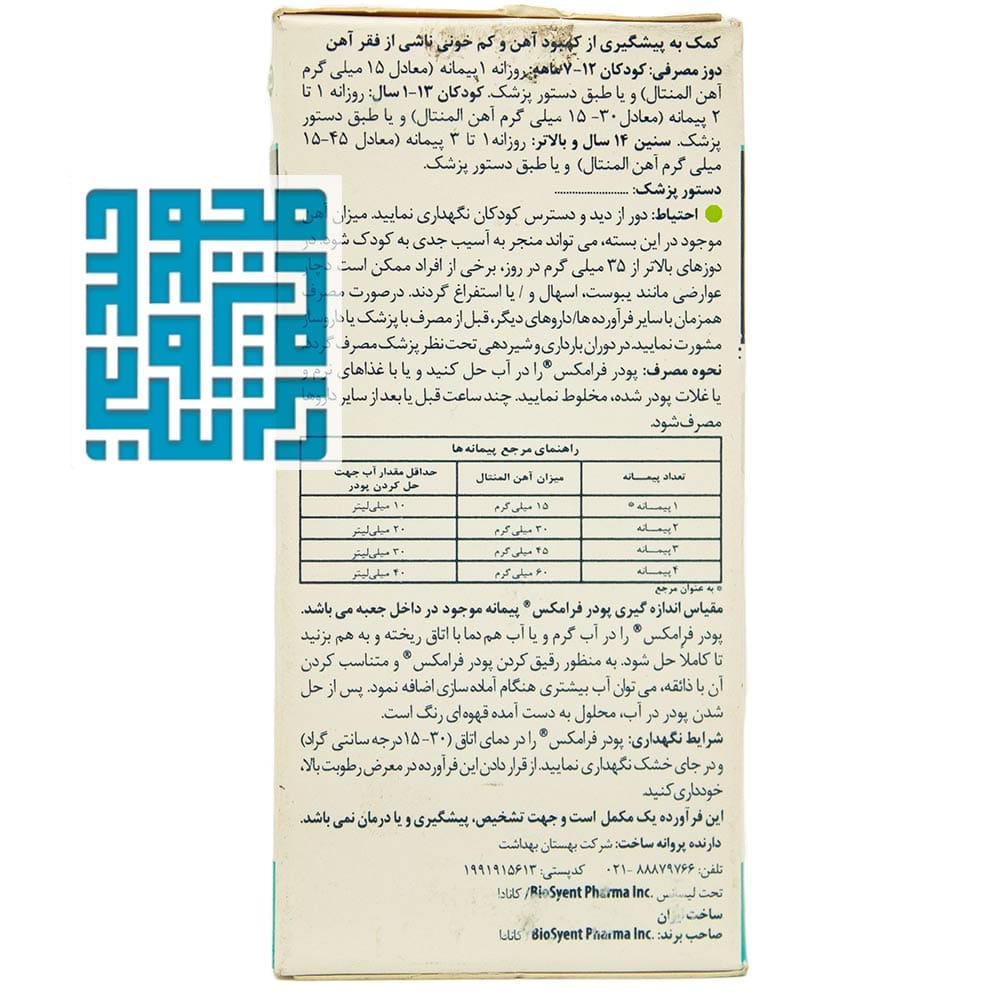 کمک به پیشگیری از کمبود آهن و کم خونی ناشی از فقر آهن
دوز مصرفی: کودکان ۱۲-۷ماهه: روزانه ۱پیمانه (معادل ۱۵ میلی گرم
آهن المنتال) و یا طبق دستور پزشک. کودکان ۱۳-۱ سال: روزانه ۱ تا
۲ پیمانه (معادل ۳۰- ۱۵ میلی گرم آهن المنتال) و یا طبق دستور
پزشک. سنین ۱۴ سال و بالاتر: روزانه۱ تا ۳ پیمانه (معادل ۴۵-۱۵
میلی گرم آهن المنتال) و یا طبق دستور پزشک.
دستور پزشک: ..........................
احتیاط: دور از دید و دسترس کودکان نگهداری نمایید. میزان آهن
موجود در این بسته، می تواند منجر به آسیب جدی به کودک شود. در
دوزهای بالاتر از ۳۵ میلی گرم در روز، برخی از افراد ممکن است دچار
عوارضی مانند یبوست، اسهال و / یا استفراغ گردند. درصورت مصرف
همزمان با سایر فرآورده ها/داروهای دیگر، قبل از مصرف با پزشک یا داروساز
مشورت نمایید. در دوران بارداری و شیردهی تحت نظر پزشک مصرف گردد.
نحوه مصرف: پودر فرامکس® را در آب حل کنید و یا با غذاهای نرم و
یا غلات پودر شده، مخلوط نمایید. چند ساعت قبل یا بعد از سایر داروها
مصرف شود.
راهنمای مرجع پیمانه ها
تعداد پیمـــانه میزان آهن المنتال حداقل مقدار آب جهت حل کردن پودر
۱ پیمـــانه * ۱۵ میلی گرم ۱۰ میلی‌لیتر
۲پیمـــانه ۳۰ میلی گرم ۲۰ میلی‌لیتر
۳ پیمـــانه ۴۵ میلی گرم ۳۰ میلی‌لیتر
۴ پیمـــانه ۶۰ میلی گرم ۴۰ میلی‌لیتر
* به عنوان مرجع
مقیاس اندازه گیری پودر فرامکس® پیمانه موجود در داخل جعبه می باشد.
پودر فرامکس® را در آب گرم و یا آب هم دما با اتاق ریخته و به هم بزنید
تا کاملاً حل شود. به منظور رقیق کردن پودر فرامکس® و متناسب کردن
آن با ذائقه، می توان آب بیشتری هنگام آماده سازی اضافه نمود. پس از حل
شدن پودر در آب، محلول به دست آمده قهوه ای رنگ است.
شرایط نگهداری: پودر فرامکس® را در دمای اتاق (۳۰-۱۵درجه سانتی گراد)
و در جای خشک نگهداری نمایید. از قرار دادن این فرآورده در معرض رطوبت بالا،
خودداری کنید.
این فرآورده یک مکمل است و جهت تشخیص، پیشگیری و یا درمان نمی باشد.
دارنده پروانه ساخت: شرکت بهستان بهداشت
تلفن: ۸۸۸۷۹۷۶۶ -۰۲۱ کدپستی: ۱۹۹۱۹۱۵۶۱۳
تحت لیسانس BioSyent Pharma Inc./ کانادا
ساخت ایران
صاحب برند: BioSyent Pharma Inc./ کانادا